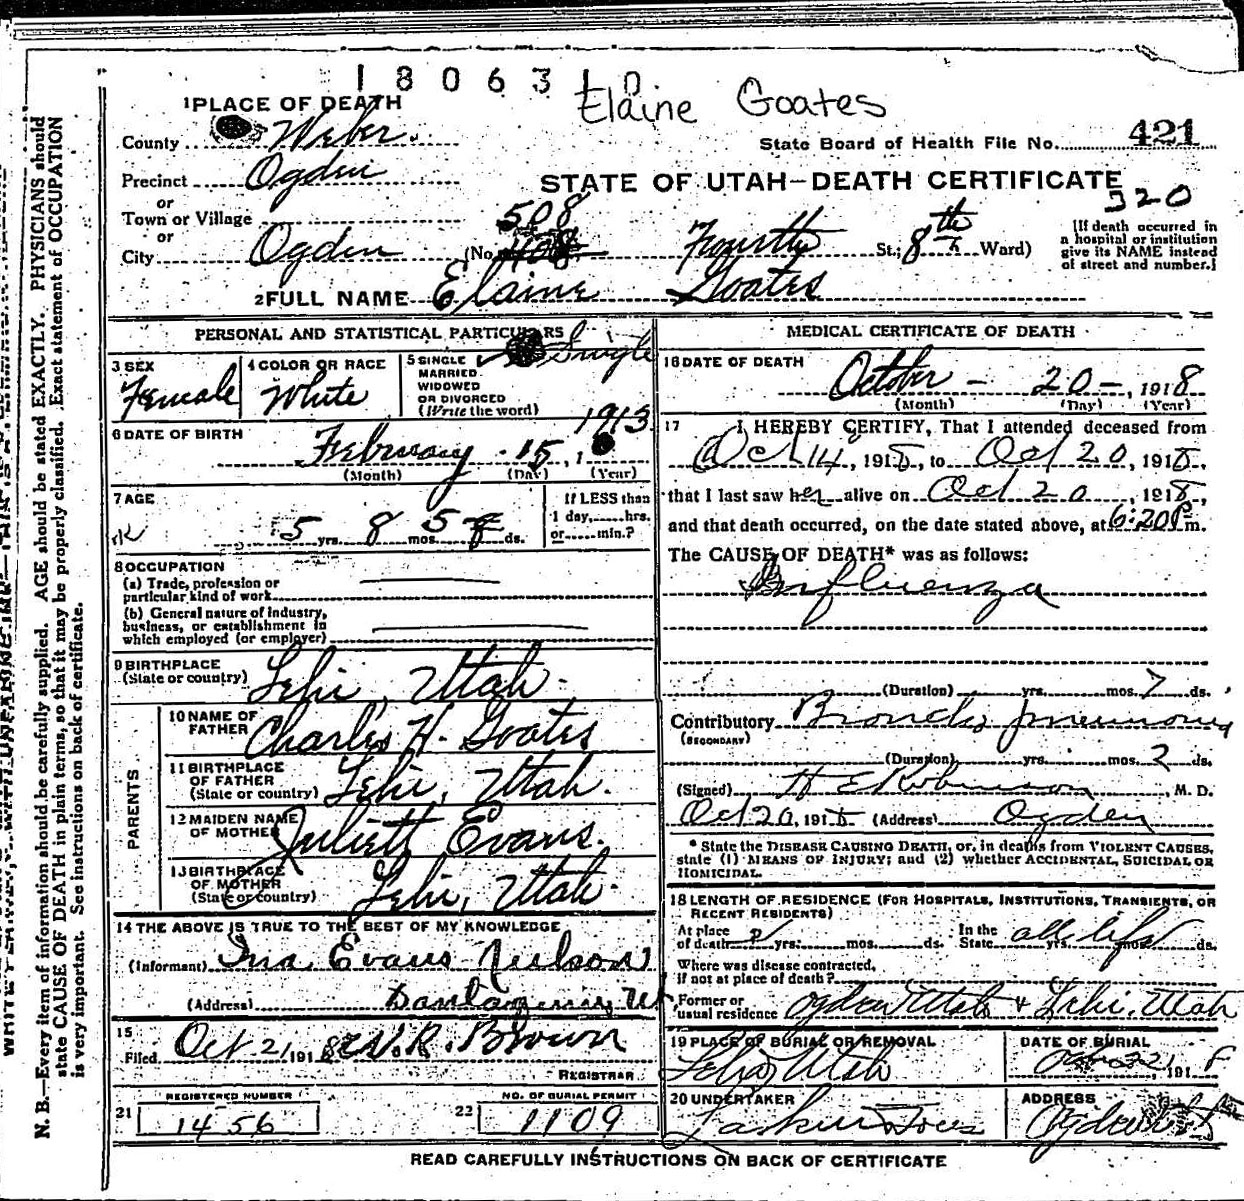 1806310
Elaine Goates
1 PLACE OF DEATH
County Weber.
State Board of Health File No. 421
Precinct Ogden
STATE OF UTAH—DEATH CERTIFICATE
320
or
Town or Village
or
City Ogden (No. 508 408 Fourth St.; 8th Ward)
[If death occurred in
a hospital or institution
give its NAME instead
of street and number.]
2 FULL NAME Elaine Goates
PERSONAL AND STATISTICAL PARTICULARS
3 SEX
Female
4 COLOR OR RACE
White
5 SINGLE
MARRIED
WIDOWED
OR DIVORCED
(Write the word)
Single
6 DATE OF BIRTH
February 15, 1913
(Month) (Day) (Year)
7 AGE
5 yrs. 8 mos. 5 ds.
If LESS than
1 day,......hrs.
or......min.?
8 OCCUPATION
(a) Trade, profession or
particular kind of work
(b) General nature of industry,
business, or establishment in
which employed (or employer)
9 BIRTHPLACE
(State or country) Lehi, Utah.
PARENTS
10 NAME OF
FATHER Charles H. Goates
11 BIRTHPLACE
OF FATHER
(State or country) Lehi, Utah.
12 MAIDEN NAME
OF MOTHER Juliett Evans.
13 BIRTHPLACE
OF MOTHER
(State or country) Lehi, Utah.
14 THE ABOVE IS TRUE TO THE BEST OF MY KNOWLEDGE
(Informant) Ina Evans
(Address) Ut
15
Filed Oct 21, 1918 W. R. Brown
REGISTRAR
REGISTERED NUMBER
21 1456
NO. OF BURIAL PERMIT
22 1109
MEDICAL CERTIFICATE OF DEATH
16 DATE OF DEATH
October — 20 —, 1918
(Month) (Day) (Year)
17 I HEREBY CERTIFY, That I attended deceased from
Oct 14, 1918, to Oct 20, 1918,
that I last saw her alive on Oct 20, 1918,
and that death occurred, on the date stated above, at 6:20 P m.
The CAUSE OF DEATH* was as follows:
Influenza
(Duration) yrs. mos. 7 ds.
Contributory Broncho pneumonia
(SECONDARY)
(Duration) yrs. mos. 2 ds.
(Signed) H E Robinson, M. D.
Oct 20, 1918 (Address) Ogden
* State the DISEASE CAUSING DEATH, or, in deaths from VIOLENT CAUSES,
state (1) MEANS OF INJURY; and (2) whether ACCIDENTAL, SUICIDAL OR
HOMICIDAL.
18 LENGTH OF RESIDENCE (FOR HOSPITALS, INSTITUTIONS, TRANSIENTS, OR
RECENT RESIDENTS)
At place
of death yrs. mos. ds.
In the
State all life yrs. mos. ds.
Where was disease contracted,
if not at place of death?
Former or
usual residence Ogden Utah & Lehi, Utah
19 PLACE OF BURIAL OR REMOVAL
Lehi, Utah
DATE OF BURIAL
21, 1918
20 UNDERTAKER
Larkin
ADDRESS
Ogden Ut
READ CAREFULLY INSTRUCTIONS ON BACK OF CERTIFICATE
N. B.—Every item of information should be carefully supplied. AGE should be stated EXACTLY. PHYSICIANS should
state CAUSE OF DEATH in plain terms, so that it may be properly classified. Exact statement of OCCUPATION
is very important. See instructions on back of certificate.